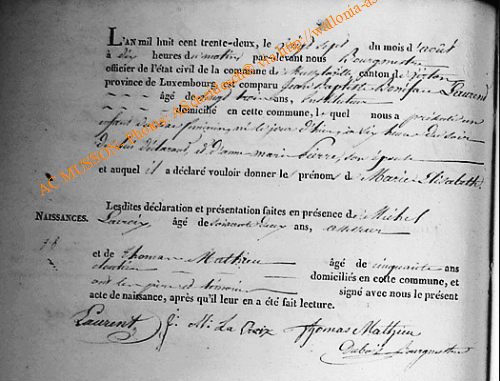 L'AN mil huit cent trente-deux, le vingt sept du mois d'août
à dix heures du matin par-devant nous Bourgmestre
officier de l'état civil de la commune de canton de
province de Luxembourg est comparu Jean Baptiste Boniface Laurent
âgé de vingt trois ans, instituteur
domicilié en cette commune, lequel nous a présenté un
enfant du sexe féminin, né le jour d'hier à dix heures du soir
de lui déclarant, et d'anne marie Pierre, son épouse
et auquel il a déclaré vouloir donner le prénom de Marie Elisabeth
Lesdites déclaration et présentation faites en présence de Michel
NAISSANCES.
Lacroix âgé de soixante deux ans,
et de Thomas Mathieu âgé de cinquante ans
domiciliés en cette commune, et
ont les père et témoins signé avec nous le présent
acte de naissance, après qu'il leur en a été fait lecture.
Laurent J. M. La Croix Thomas Mathieu
Bourgmestre
AC MUSSON, Photo http://wallonia-as